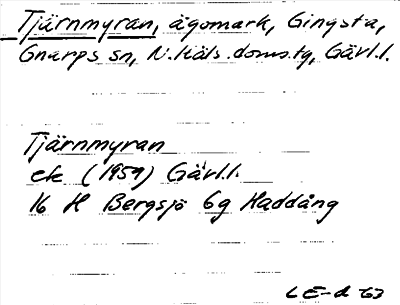 Tjärnmyran, ägomark, Gingsta,
Gnarps sn, N. Häls. doms.tg, Gävl.l.
Tjärnmyran
ek (1959) Gävl.l.
16 H Bergsjö 6g Haddång
LE-d 63